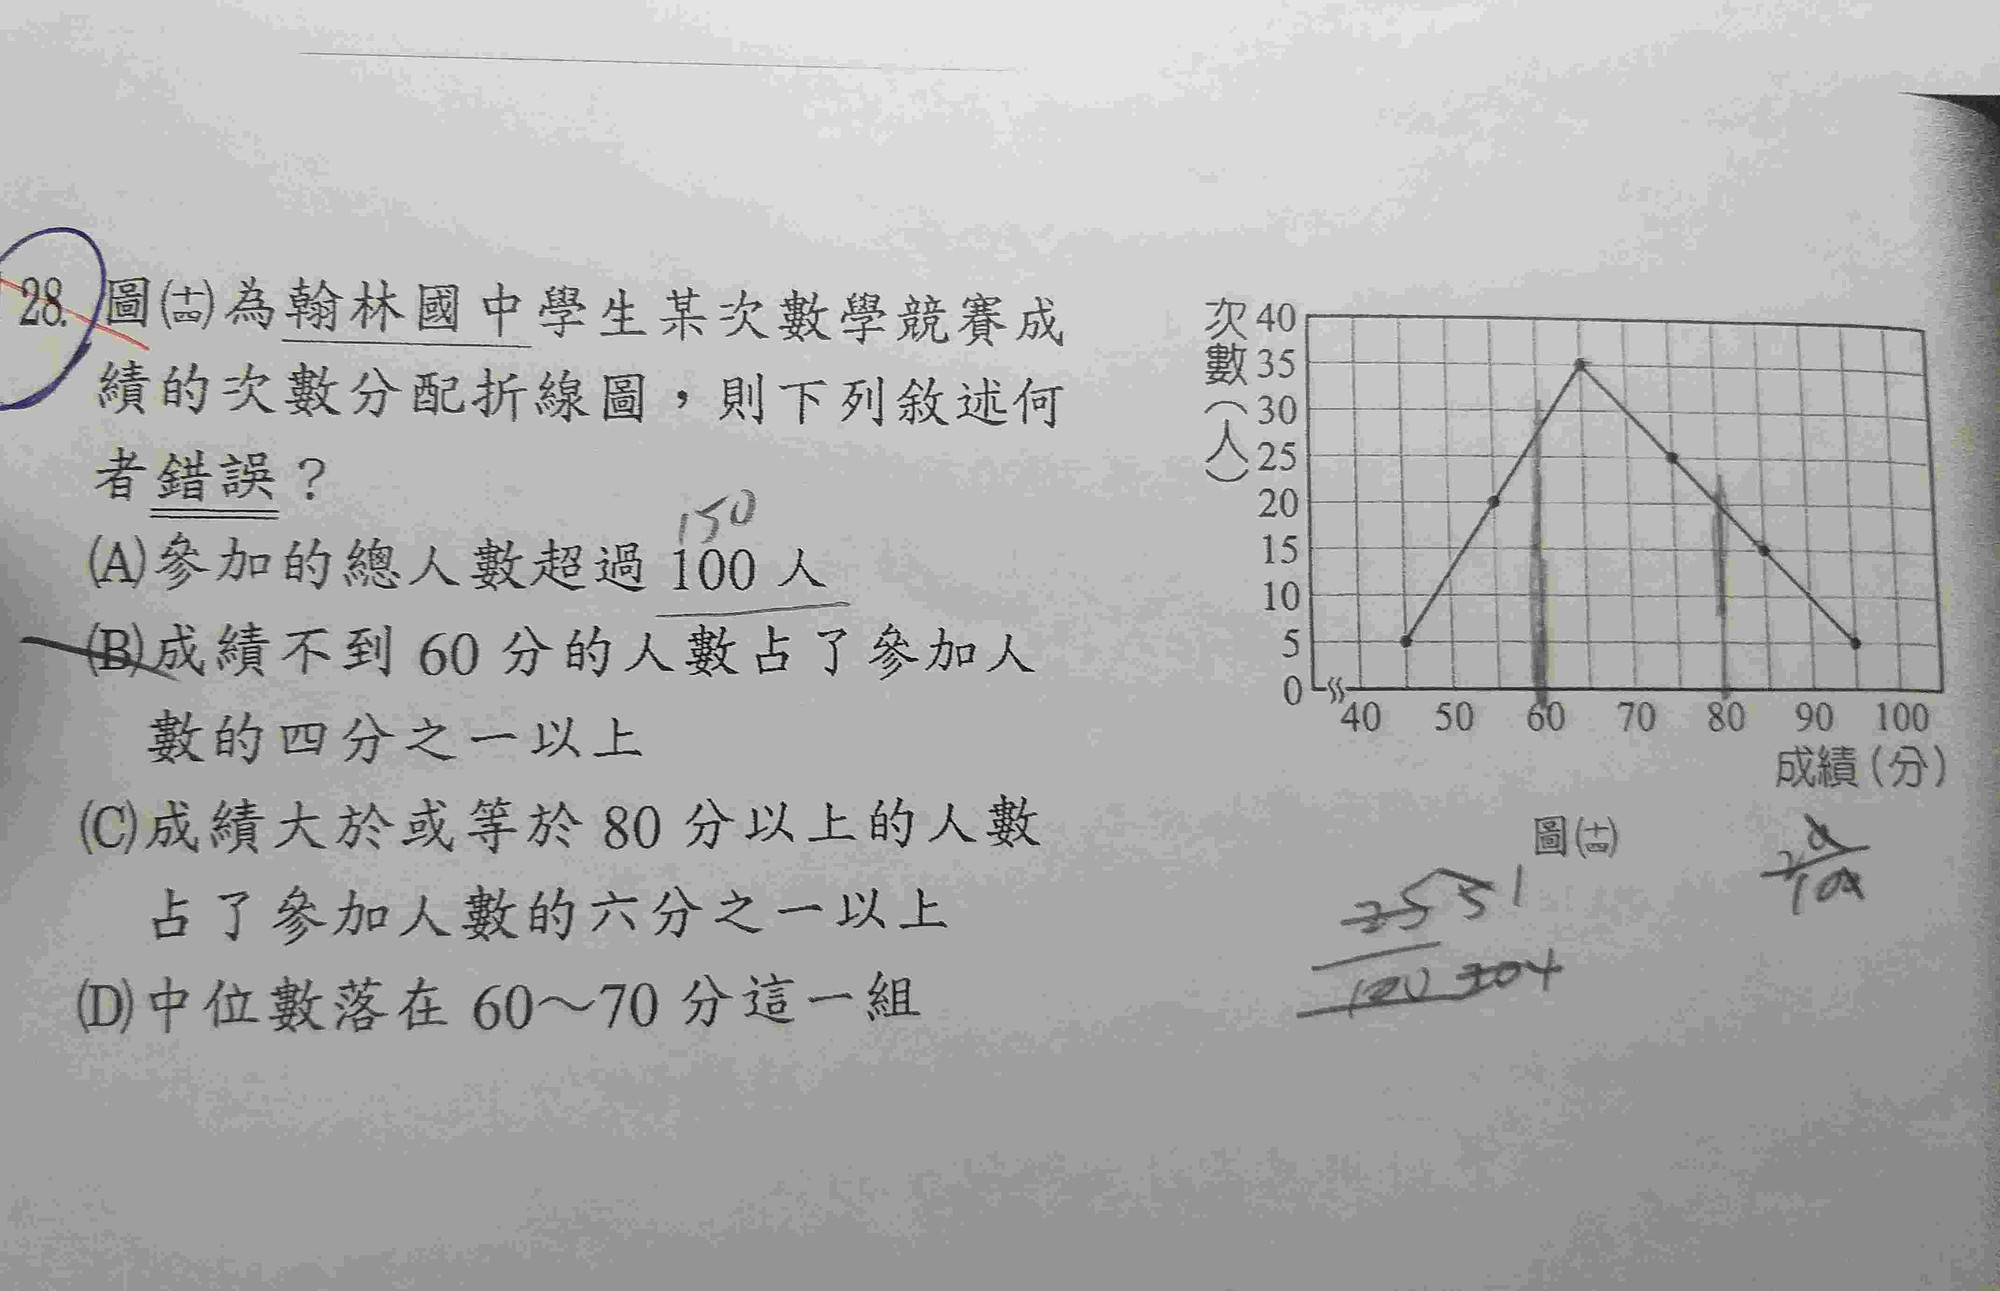 28. 圖(十四)為翰林國中學生某次數學競賽成
績的次數分配折線圖，則下列敘述何
者錯誤？
150
(A)參加的總人數超過 100 人
(B)成績不到 60 分的人數占了參加人
數的四分之一以上
(C)成績大於或等於 80 分以上的人數
占了參加人數的六分之一以上
(D)中位數落在 60～70 分這一組
次數（人）
40
35
30
25
20
15
10
5
0
40 50 60 70 80 90 100
成績（分）
圖(十四)
25 5 1